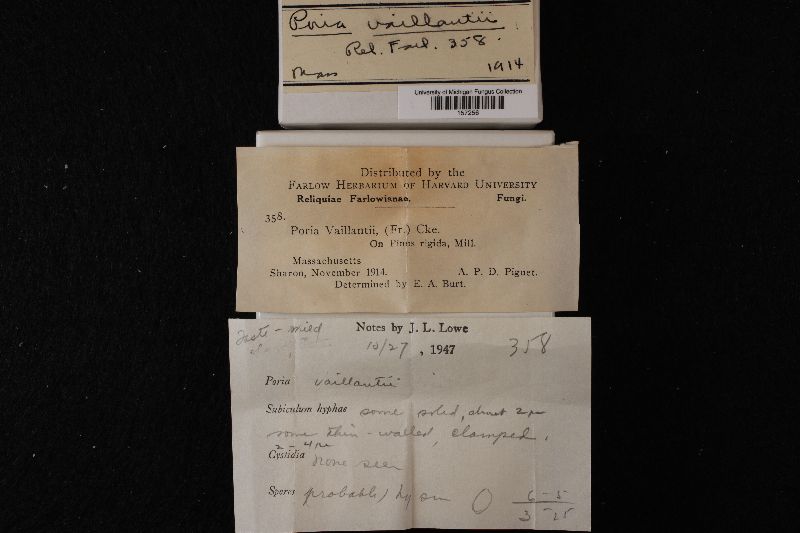 Poria vaillantii
Rel. Farl. 358.
Mass 1914
University of Michigan Fungus Collection
157256
Distributed by the
FARLOW HERBARIUM OF HARVARD UNIVERSITY
Reliquiae Farlowianae. Fungi.
358.
Poria Vaillantii, (Fr.) Cke.
On Pinus rigida, Mill.
Massachusetts
Sharon, November 1914. A. P. D. Piguet.
Determined by E. A. Burt.
Taste - mild
Notes by J. L. Lowe
10/27, 1947 358
Poria vaillantii
Subiculum hyphae some solid, about 2µ
some thin-walled, clamped,
2-4µ
Cystidia none seen
Spores probable, hy sm 6-5
3